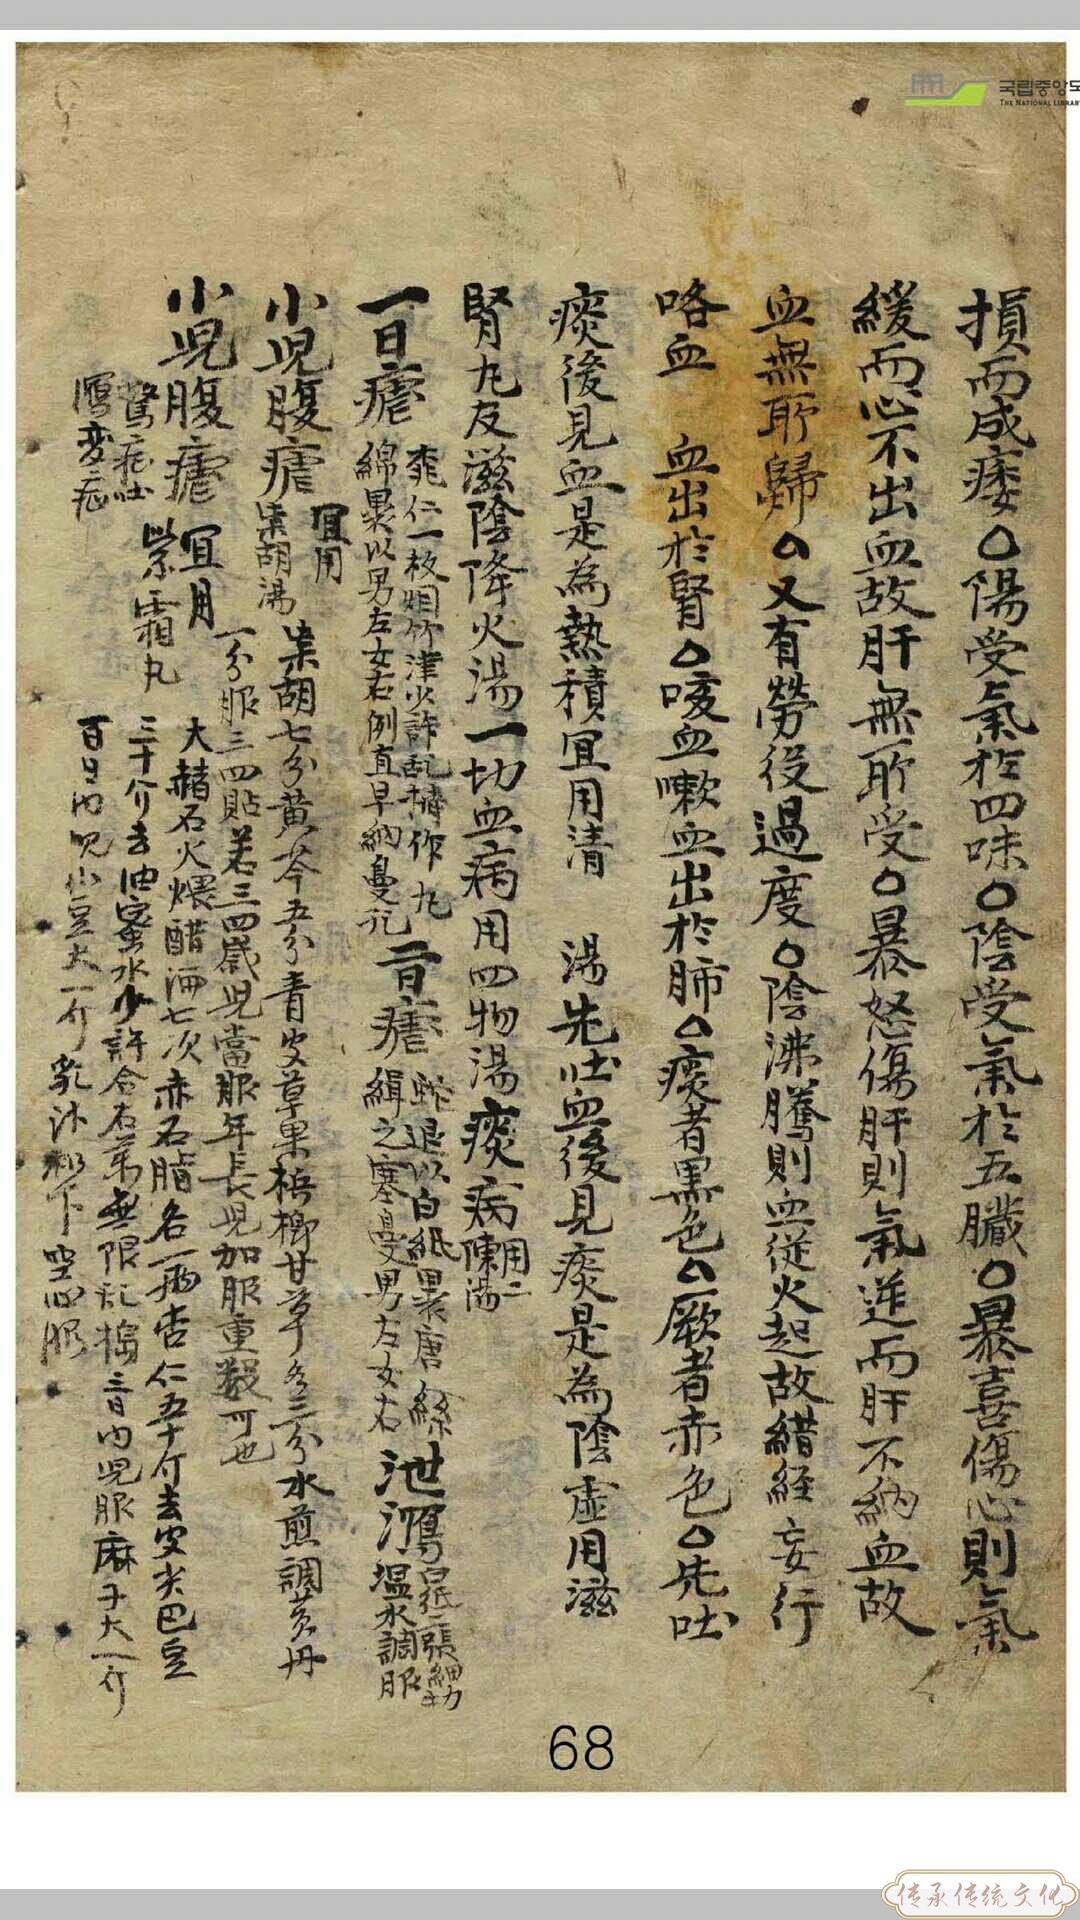 국립중앙도
THE NATIONAL LIBRARY
損而成痿○陽受氣於四味○陰受氣於五臟○暴喜傷心則氣
緩而心不出血故肝無所受○暴怒傷肝則氣逆而肝不納血故
血無所歸○又有勞役過度○陰沸騰則血從火起故錯経妄行
咯血 血出於腎○咳血嗽血出於肺○痰者黑色○厥者赤色○先吐
痰後見血是為熱積宜用清 湯先吐血後見痰是為陰虛用滋
腎丸友滋陰降火湯一切血病用四物湯痰病用二陳湯
一日瘧
仁一枚 津火許 作丸
綿裹以男左女右例直早納
二日瘧
蛇退以白紙裹唐絲
緝之塞 男左女右
泄瀉
白紙一張細切
温水調服
小児腹瘧
宜用
柴胡湯
柴胡七分黄芩五分青皮草果梹榔甘草各三分水煎調黄丹
一分服三四貼若三四歳児當服年長児加服重数可也
小児腹瘧
宜用
紫霜丸
大赭石火煨醋 七次赤石脂各一兩杏仁五十介去皮尖巴豆
三十介去油蜜水少許合 無限 搗三日内児服麻子大一介
百日内児小豆大一介乳汁 下空心服
68
传承传统文化